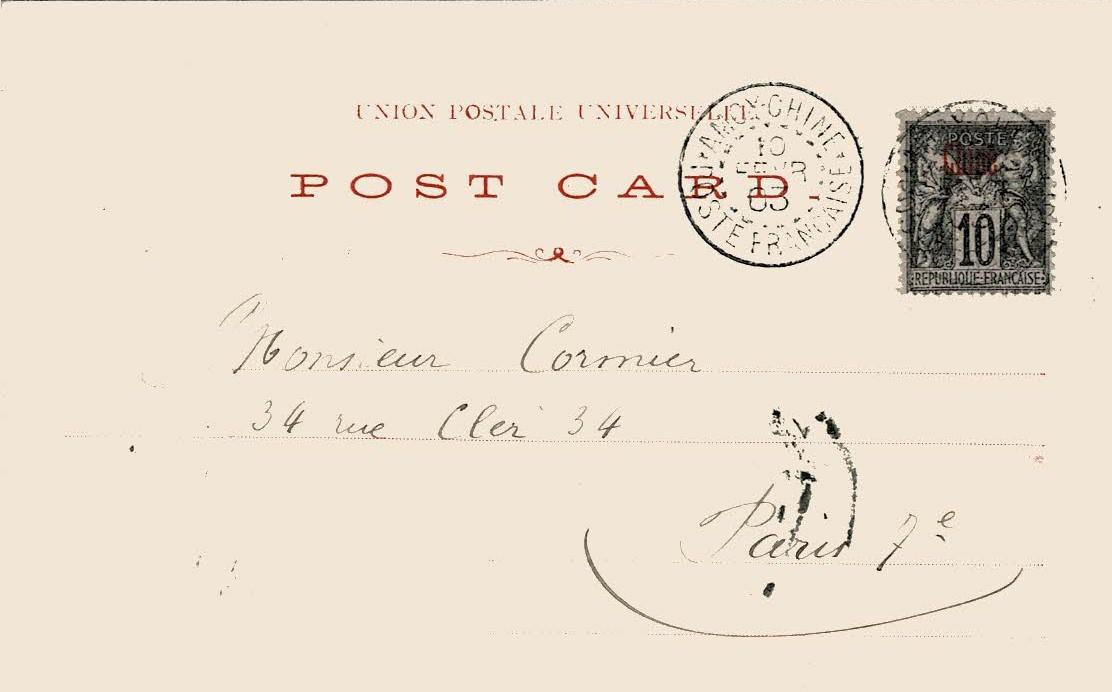 UNION POSTALE UNIVERSELLE
POST CARD.
AMOY-CHINE
10
FEVR
03
POSTE FRANÇAISE
POSTE
Chine
10
REPUBLIQUE-FRANCAISE
Monsieur Cormier
34 rue Cler 34
Paris 7e